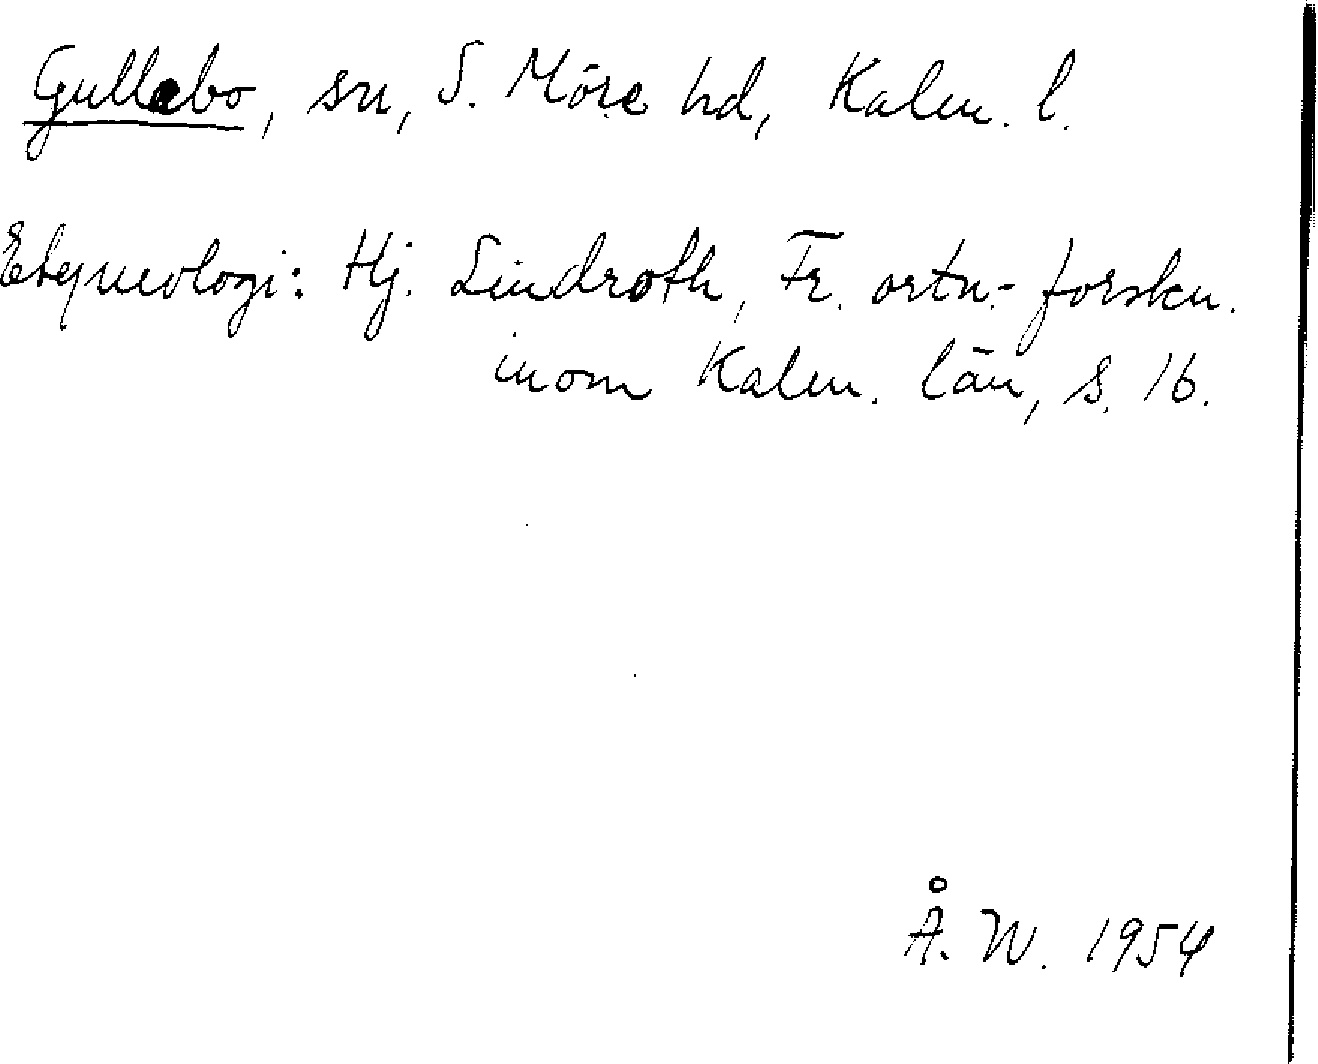 Gullabo, sn, S. Möre hd, Kalm. l.
Etymologi: Hj. Lindroth, Fr. ortn.-forskn.
inom Kalm. län, s. 16.
Å. W. 1954